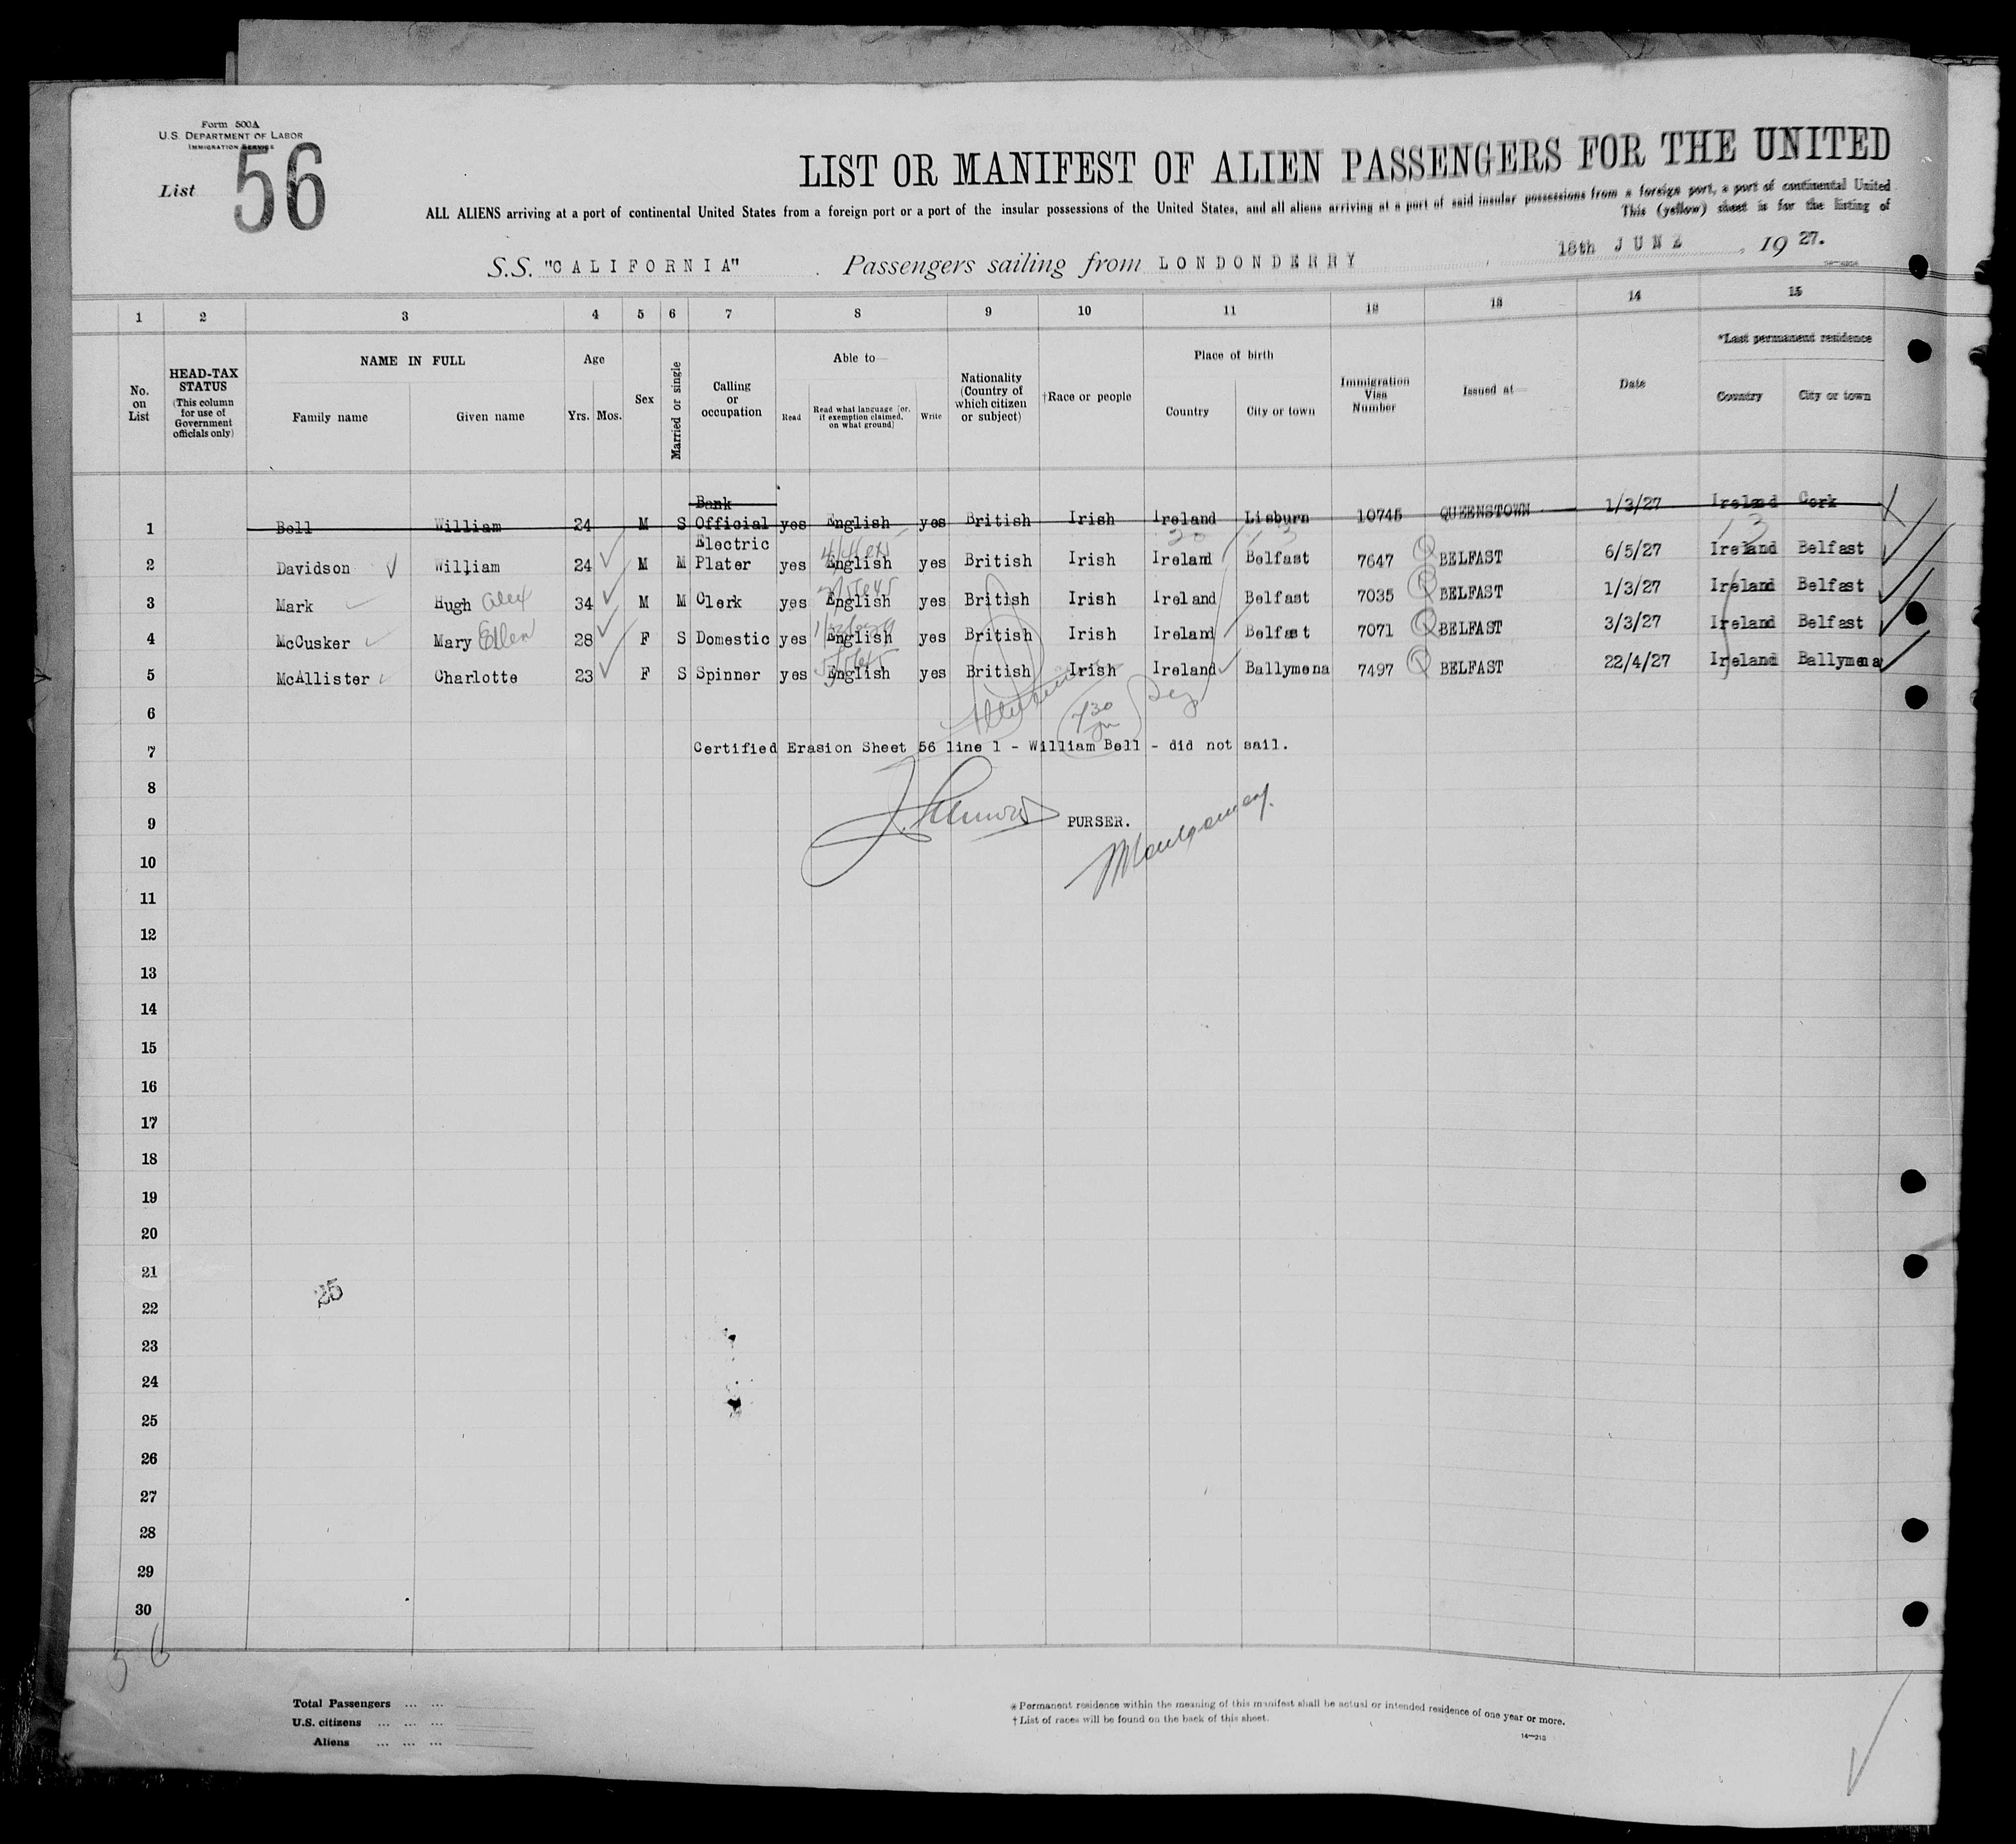 Form 500A
U.S. DEPARTMENT OF LABOR
IMMIGRATION SERVICE
List 56
LIST OR MANIFEST OF ALIEN PASSENGERS FOR THE UNITED
ALL ALIENS arriving at a port of continental United States from a foreign port or a port of the insular possessions of the United States, and all aliens arriving at a port of said insular possessions from a foreign port, a port of continental United
This (yellow) sheet is for the listing of
S.S. "CALIFORNIA" Passengers sailing from LONDONDERRY 18th JUNE, 1927.
1 2 3 4 5 6 7 8 9 10 11 12 13 14 15
No. on List
HEAD-TAX STATUS (This column for use of Government officials only)
NAME IN FULL
Family name Given name
Age
Yrs. Mos.
Sex
Married or single
Calling or occupation
Able to—
Read
Read what language [or, if exemption claimed, on what ground]
Write
Nationality (Country of which citizen or subject)
†Race or people
Place of birth
Country City or town
Immigration Visa Number
Issued at—
Date
*Last permanent residence
Country City or town
1 Bell William 24 M S Bank Official yes English yes British Irish Ireland Lisburn 10745 QUEENSTOWN 1/3/27 Ireland Cork
2 Davidson William 24 M M Electric Plater yes English yes British Irish Ireland Belfast 7647 BELFAST 6/5/27 Ireland Belfast
3 Mark Hugh Alex 34 M M Clerk yes English yes British Irish Ireland Belfast 7035 BELFAST 1/3/27 Ireland Belfast
4 McCusker Mary Ellen 28 F S Domestic yes English yes British Irish Ireland Belfast 7071 BELFAST 3/3/27 Ireland Belfast
5 McAllister Charlotte 23 F S Spinner yes English yes British Irish Ireland Ballymena 7497 BELFAST 22/4/27 Ireland Ballymena
6
7 Certified Erasion Sheet 56 line 1 - William Bell - did not sail.
8
9 PURSER.
Montgomery.
10
11
12
13
14
15
16
17
18
19
20
21
25
22
23
24
25
26
27
28
29
30
56
Total Passengers ... ...
U.S. citizens ... ... ...
Aliens ... ... ...
*Permanent residence within the meaning of this manifest shall be actual or intended residence of one year or more.
†List of races will be found on the back of this sheet.
14—213